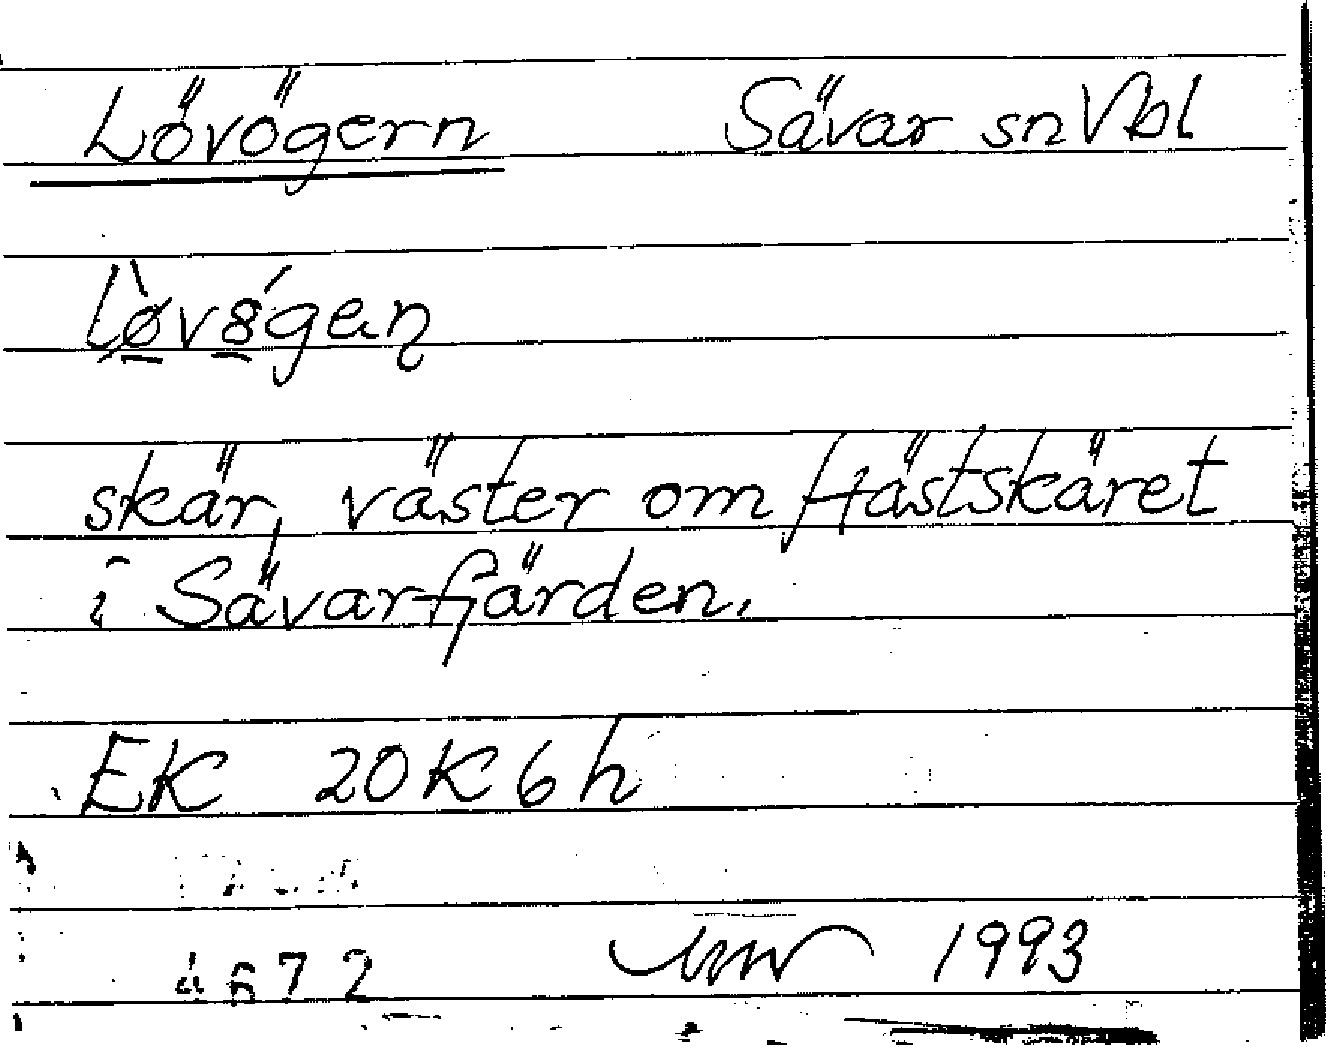 Lövögern Sävar sn Vbl
lø̠̀vȣ̠́gaɳ
skär, väster om Hästskäret
i Sävarfjärden.
EK 20K6h
4672 1993